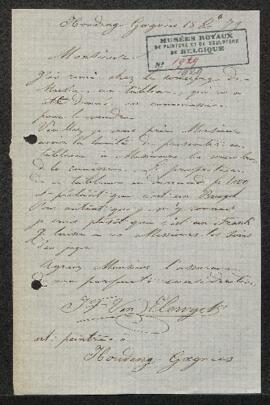 Houdeng Goegnies 15 Xbre 79
MUSÉES ROYAUX
DE PEINTURE ET DE SCULPTURE
DE BELGIQUE
N° 1929
Monsieur
J'ai remis chez le concierge du
Musée, un tableau, qui m'a
été donné en commission
pour le vendre
Veuillez je vous prie Monsieur
avoir la bonté de présenter ce
tableau à Messieurs les membres
de la commission. Le propriétaire
de ce tableau en demande
et prétend que c'est un
autant que je m'y connais
je crois plutôt que c'est un
Je laisse à ces Messieurs le soin
d'en juger
Agréez Monsieur l'assurance
de ma parfaite considération
J F Van
art. peintre à
Houdeng Goegnies